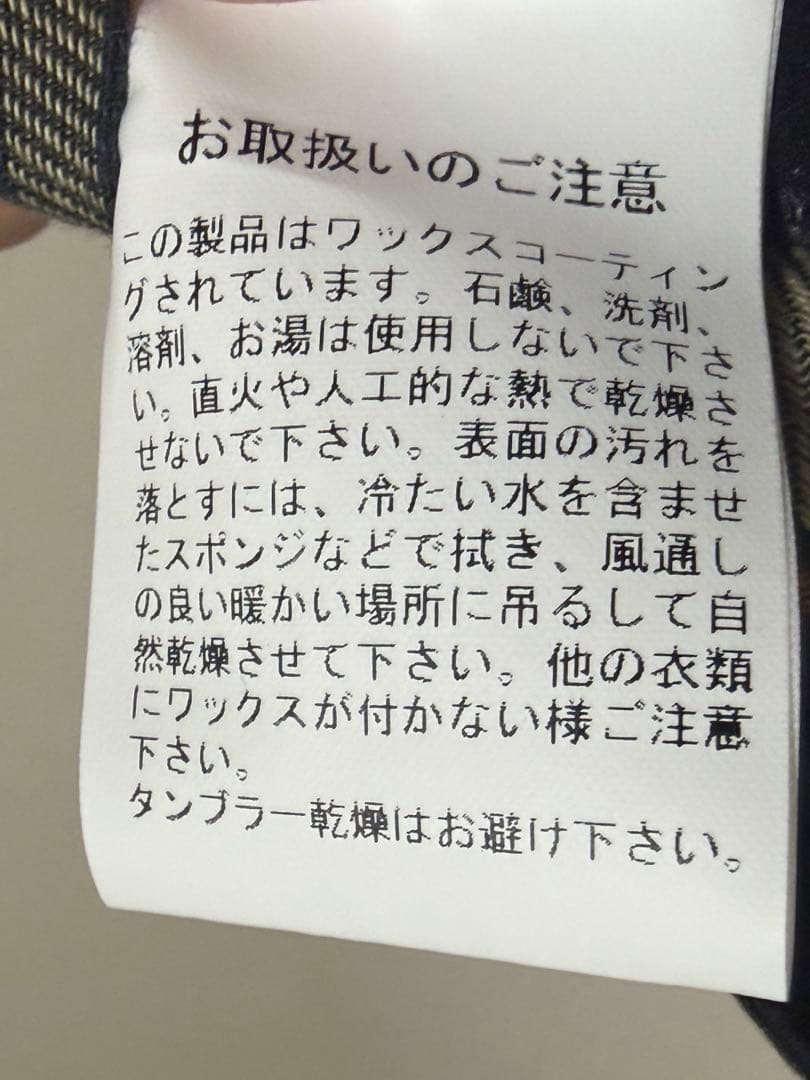 お取扱いのご注意
この製品はワックスコーティン
グされています。石鹸、洗剤、
溶剤、お湯は使用しないで下さ
い。直火や人工的な熱で乾燥さ
せないで下さい。表面の汚れを
落とすには、冷たい水を含ませ
たスポンジなどで拭き、風通し
の良い暖かい場所に吊るして自
然乾燥させて下さい。他の衣類
にワックスが付かない様ご注意
下さい。
タンブラー乾燥はお避け下さい。